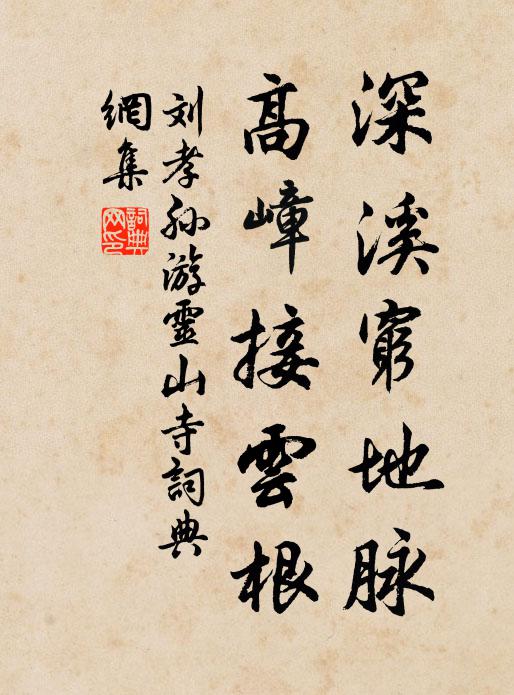 深溪窮地脉
高嶂接雲根
刘孝孙游靈山寺詞典
網集
詞典
网印